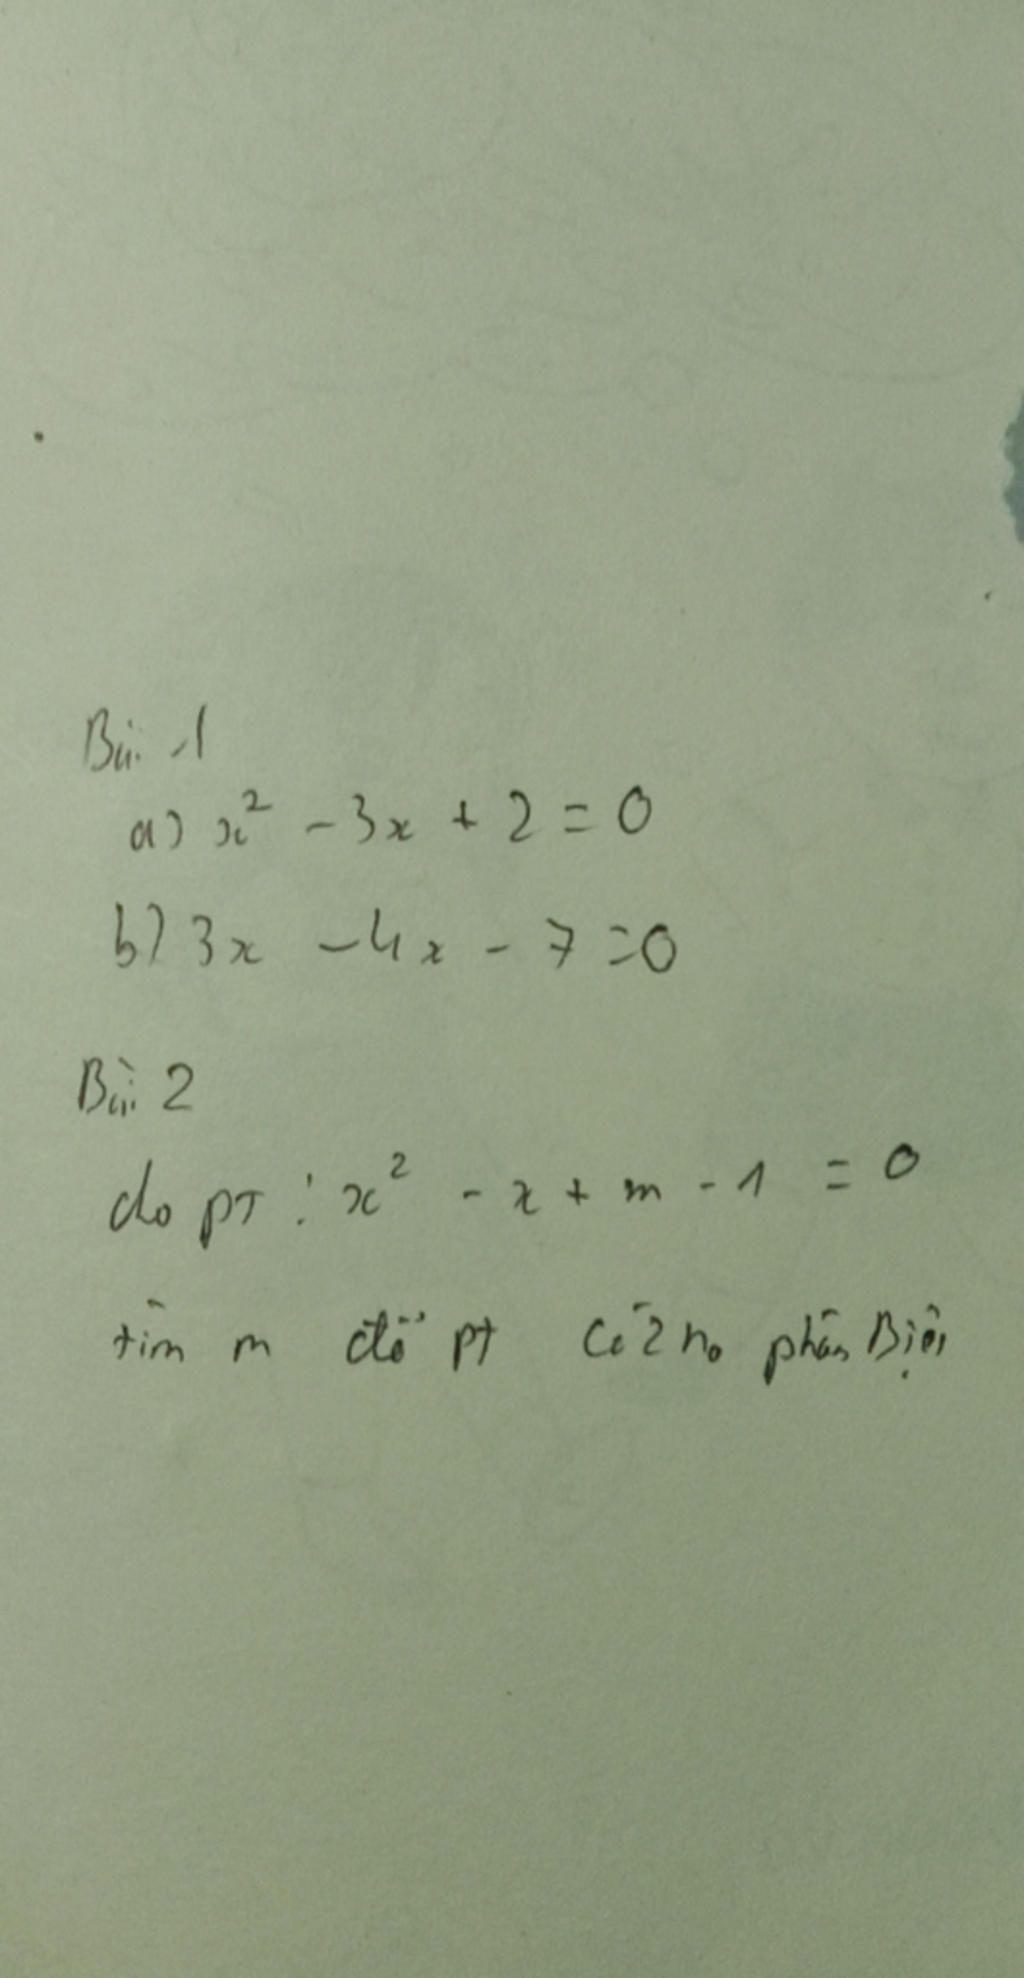 Bài 1
a) x² - 3x + 2 = 0
b) 3x - 4x - 7 = 0
Bài 2
cho pT : x² - x + m - 1 = 0
tìm m để pt có 2 no phân Biệt